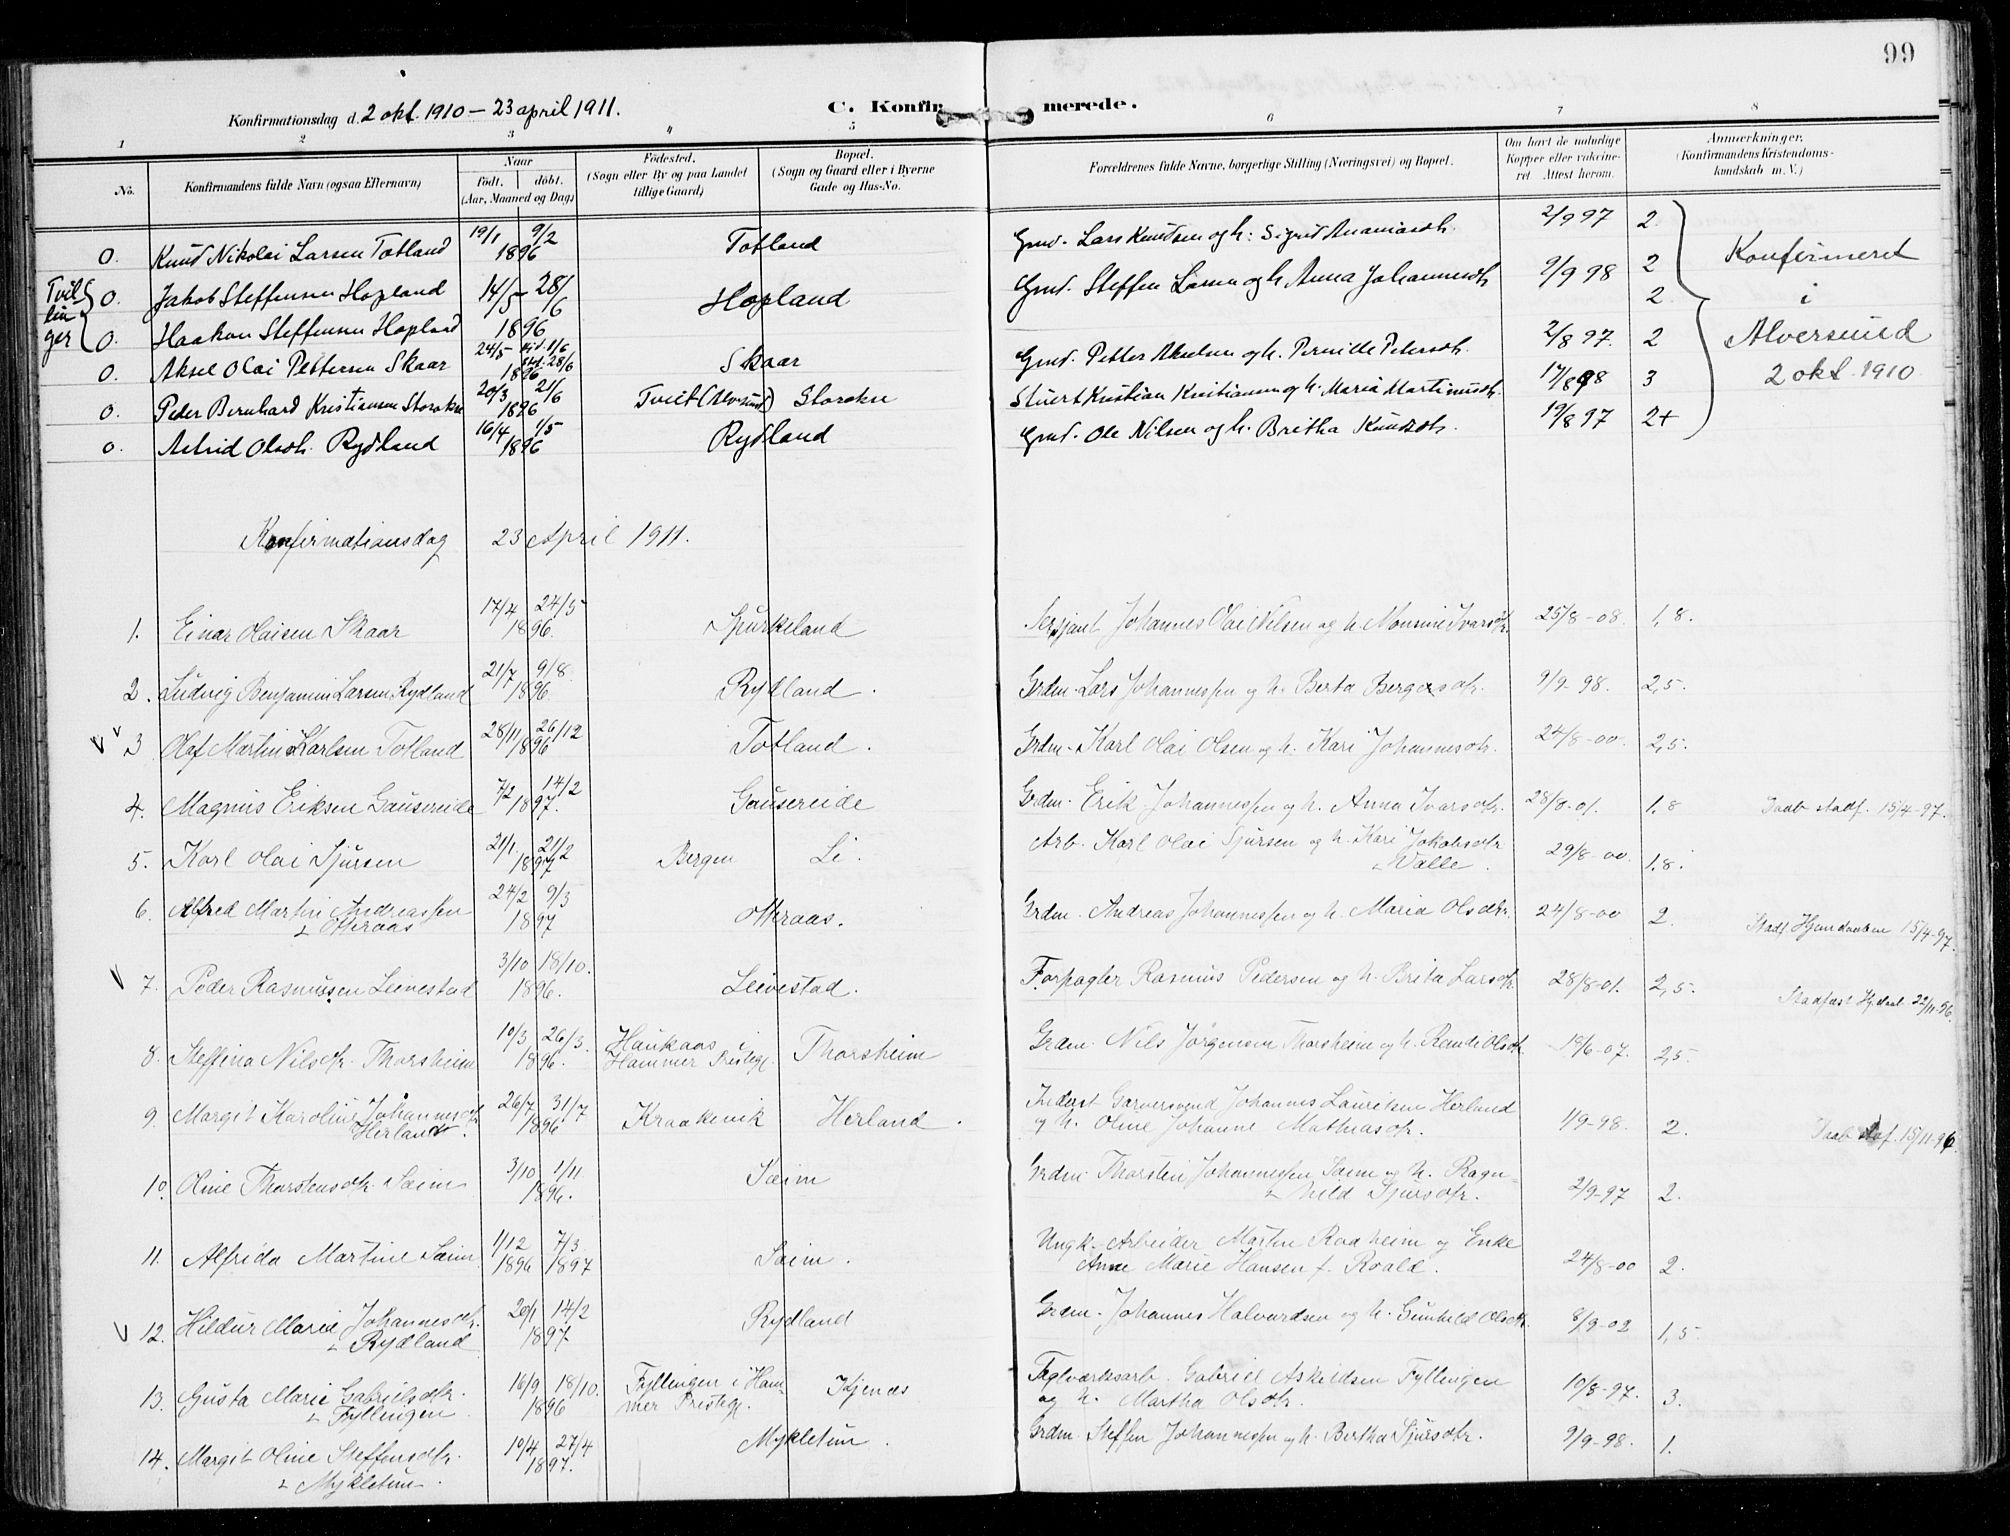 99
Konfirmationsdag d. 2 okt. 1910 – 23 april 1911.
C. Konfirmerede.
1 2 3 4 5 6 7 8
No.
Konfirmandens fulde Navn (ogsaa Efternavn)
Naar
født. døbt.
(Aar, Maaned og Dag)
Fødested.
(Sogn eller By og paa Landet
tillige Gaard)
Bopæl.
(Sogn og Gaard eller i Byerne
Gade og Hus-No.
Forældrenes fulde Navne, borgerlige Stilling (Næringsvei) og Bopæl.
Om havt de naturlige
Kopper eller vakcine-
ret. Attest herom.
Anmærkninger.
(Konfirmandens Kristendoms-
kundskab m. V.)
0. Knud Nikolai Larsen Totland 19/1 9/2 1896 Totland Gmd. Lars Knudsen og h: Sigrid Ananiasdtr. 2/9 97 2
Tvil lin ger
0. Jakob Steffensen Hopland 14/5 28/6 Hopland Gmd. Steffen Larsen og h. Anna Johannesdtr 9/9 98 2
0. Haakon Steffensen Hopland 1896 2
0. Aksel Olai Pettersen Skaar 24/5 1/6 st. 28/6 1896 Skaar Gmd. Petter Akselsen og h. Pernille Petersdtr. 2/8 97. 2
0. Peder Bernhard Kristiansen Storoksn 20/3 21/6 1896 Tveit (Alvsund) Storoksn Kristian Kristiansen og h. Maria Martinusdtr. 17/8 98 3
0. Astrid Olsdtr. Rydland 16/4 1/5 1896 Rydland Gmd. Ole Nilsen og h. Britha Knudsdtr. 19/8 97 2+
Konfirmeret
i
Alversund
2 okt. 1910
Konfirmationsdag 23 April 1911.
1. Einar Olaisen Skaar 17/4 24/5 1896. Spurkeland Sersjant Johannes Olai Nilsen og h. Monsine Ivarsdtr. 25/8-08. 1,8.
2. Ludvig Benjamin Larsen Rydland 21/7 9/8 1896. Rydland. Grdm. Lars Johannessen og h. Berta Bergesdtr. 9/9-98. 2,5.
V v 3 Olaf Martin Karlsen Totland 28/11 26/12 1896 Totland. Grdm. Karl Olai Olsen og h. Kari Johannesdtr. 24/8-00. 2,5.
4. Magnus Eriksen Gausereide 7/2 14/2 1897. Gausereide Grdm. Erik Johannessen og h. Anna Ivarsdtr. 28/8-01. 1,8 Daab stadf. 15/4-97.
5. Karl Olai Sjursen 21/1. 21/2 1897 Bergen Li. Arb. Karl Olai Sjursen og h. Kari Jakobsdtr
Valle. 29/8-00 1,8.
6. Alfred Martin Andreassen
Ottraas 24/2 9/3 1897 Ottraas. Grdm. Andreas Johannessen og h. Maria Olsdtr. 24/8-00 2. Stadf. Hjemdaaben 15/4-97.
V 7. Peder Rasmussen Leivestad 3/10 18/10. 1896. Leivestad. Forpagter Rasmus Pedersen og h. Brita Larsdtr. 28/8-01. 2,5. Stadfæst Hjdaab 22/11-96.
8. Steffina Nilsdtr. Thorsheim 10/3 26/3. 1896. Haukaas i
Hammer Prestegj. Thorsheim Grdm. Nils Jørgensen Thorsheim og h. Randi Olsdtr 19/6-07. 2,5.
9. Margit Karoline Johannesdtr
Herland. 26/7 31/7 1896 Kraakevik Herland. Inderst Garversvend Johannes Lauritsen Herland
og h. Oline Johanne Mathiasdtr. 1/9-98. 2. Daab stadf. 15/11-96
10. Oline Thorstensdtr. Sæim 3/10 1/11 1896. Sæim Grdm. Thorstein Johannessen Sæim og h. Ragn-
hild Sjursdtr. 2/9-97 2.
11. Alfrida Martine Sæim 1/12 1896 7/3 1897 Sæim. Ungk. Arbeider Martin Roaheim og Enke
Anne Marie Hansen f. Roald. 24/8-00 2.
V 12. Hildur Marie Johannesdtr.
Rydland 20/1 14/2 1897 Rydland Grdm. Johannes Halvardsen og h. Gunhild Olsdtr. 8/9-02 1,5.
13. Gusta Marie Gabrielsdtr.
Fyllingen 16/9 18/10. 1896 Fyllingen i Ham-
mer Prestegj. Kjenes Teglværksarb. Gabriel Askildsen Fyllingen
og h. Martha Olsdtr. 10/8-97. 3.
14. Margit Oline Steffensdtr.
Mykletun 10/4 27/4 1897. Mykletun. Grdm. Steffen Johannessen og h. Bertha Sjursdtr. 9/9-98. 1.